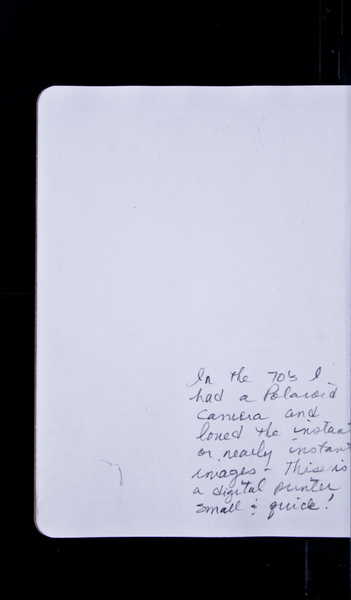 In the 70's I
had a Polaroid
camera and
loved the instant
or nearly instant
images - This is
a digital printer
small & quick!